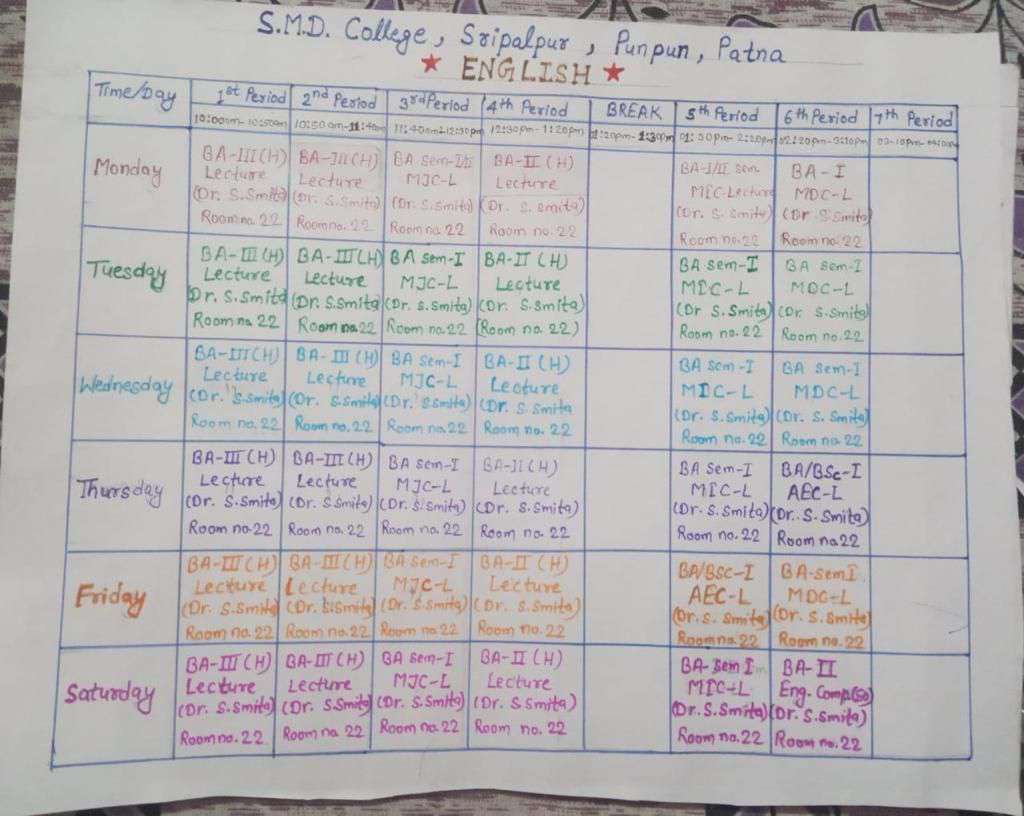 S.M.D. College, Sripalpur, Punpun, Patna
★ ENGLISH ★
Time/Day
1st Period
2nd Period
3rd Period
4th Period
BREAK
5th Period
6th Period
7th Period
10:00am-10:50am
10:50am-11:40am
11:40am-12:30pm
12:30pm-1:20pm
1:20pm-1:30pm
02:20pm-3:10pm
Monday
BA-III(H)
Lecture
(Dr. S.Smita)
Room no. 22
BA-III(H)
Lecture
(Dr. S.Smita)
Room no. 22
BA sem-I/II
MJC-L
(Dr. S.Smita)
Room no. 22
BA-II(H)
Lecture
(Dr. S. smita)
Room no. 22
BA-I/II sem
MIC-Lecture
(Dr. S. Smita)
Room no. 22
BA-I
MDC-L
(Dr. S. Smita)
Room no. 22
Tuesday
BA-III(H)
Lecture
Dr. S.Smita
Room no. 22
BA-III(H)
Lecture
(Dr. S.Smita
Room no. 22
BA sem-I
MJC-L
(Dr. S.Smita)
Room no. 22
BA-II(H)
Lecture
(Dr. S.Smita)
(Room no. 22)
BA sem-I
MIC-L
(Dr. S.Smita)
Room no. 22
BA sem-I
MDC-L
(Dr. S.Smita)
Room no. 22
Wednesday
BA-III(H)
Lecture
(Dr. S.Smita)
Room no. 22
BA-III(H)
Lecture
(Dr. S.Smita)
Room no. 22
BA sem-I
MJC-L
(Dr. S.Smita)
Room no. 22
BA-II(H)
Lecture
(Dr. S.Smita
Room no. 22
BA sem-I
MIC-L
(Dr. S.Smita)
Room no. 22
BA sem-I
MDC-L
(Dr. S.Smita)
Room no. 22
Thursday
BA-III(H)
Lecture
(Dr. S.Smita)
Room no. 22
BA-III(H)
Lecture
(Dr. S.Smita)
Room no. 22
BA sem-I
MJC-L
(Dr. S.Smita)
Room no. 22
BA-II(H)
Lecture
(Dr. S.Smita)
Room no. 22
BA sem-I
MIC-L
(Dr. S.Smita)
Room no. 22
BA/BSc-I
AEC-L
(Dr. S. Smita)
Room no. 22
Friday
BA-III(H)
Lecture
(Dr. S.Smita)
Room no. 22
BA-III(H)
Lecture
(Dr. S.Smita)
Room no. 22
BA sem-I
MJC-L
(Dr. S.Smita)
Room no. 22
BA-II(H)
Lecture
(Dr. S.Smita)
Room no. 22
BA/BSC-I
AEC-L
(Dr. S. Smita)
Room no. 22
BA-sem I
MDC-L
(Dr. S.Smita)
Room no. 22
Saturday
BA-III(H)
Lecture
(Dr. S.Smita)
Room no. 22
BA-III(H)
Lecture
(Dr. S.Smita)
Room no. 22
BA sem-I
MJC-L
(Dr. S.Smita)
Room no. 22
BA-II(H)
Lecture
(Dr. S.Smita)
Room no. 22
BA-sem I
MIC-L
(Dr. S.Smita)
Room no. 22
BA-II
Eng. Comp(50)
(Dr. S.Smita)
Room no. 22